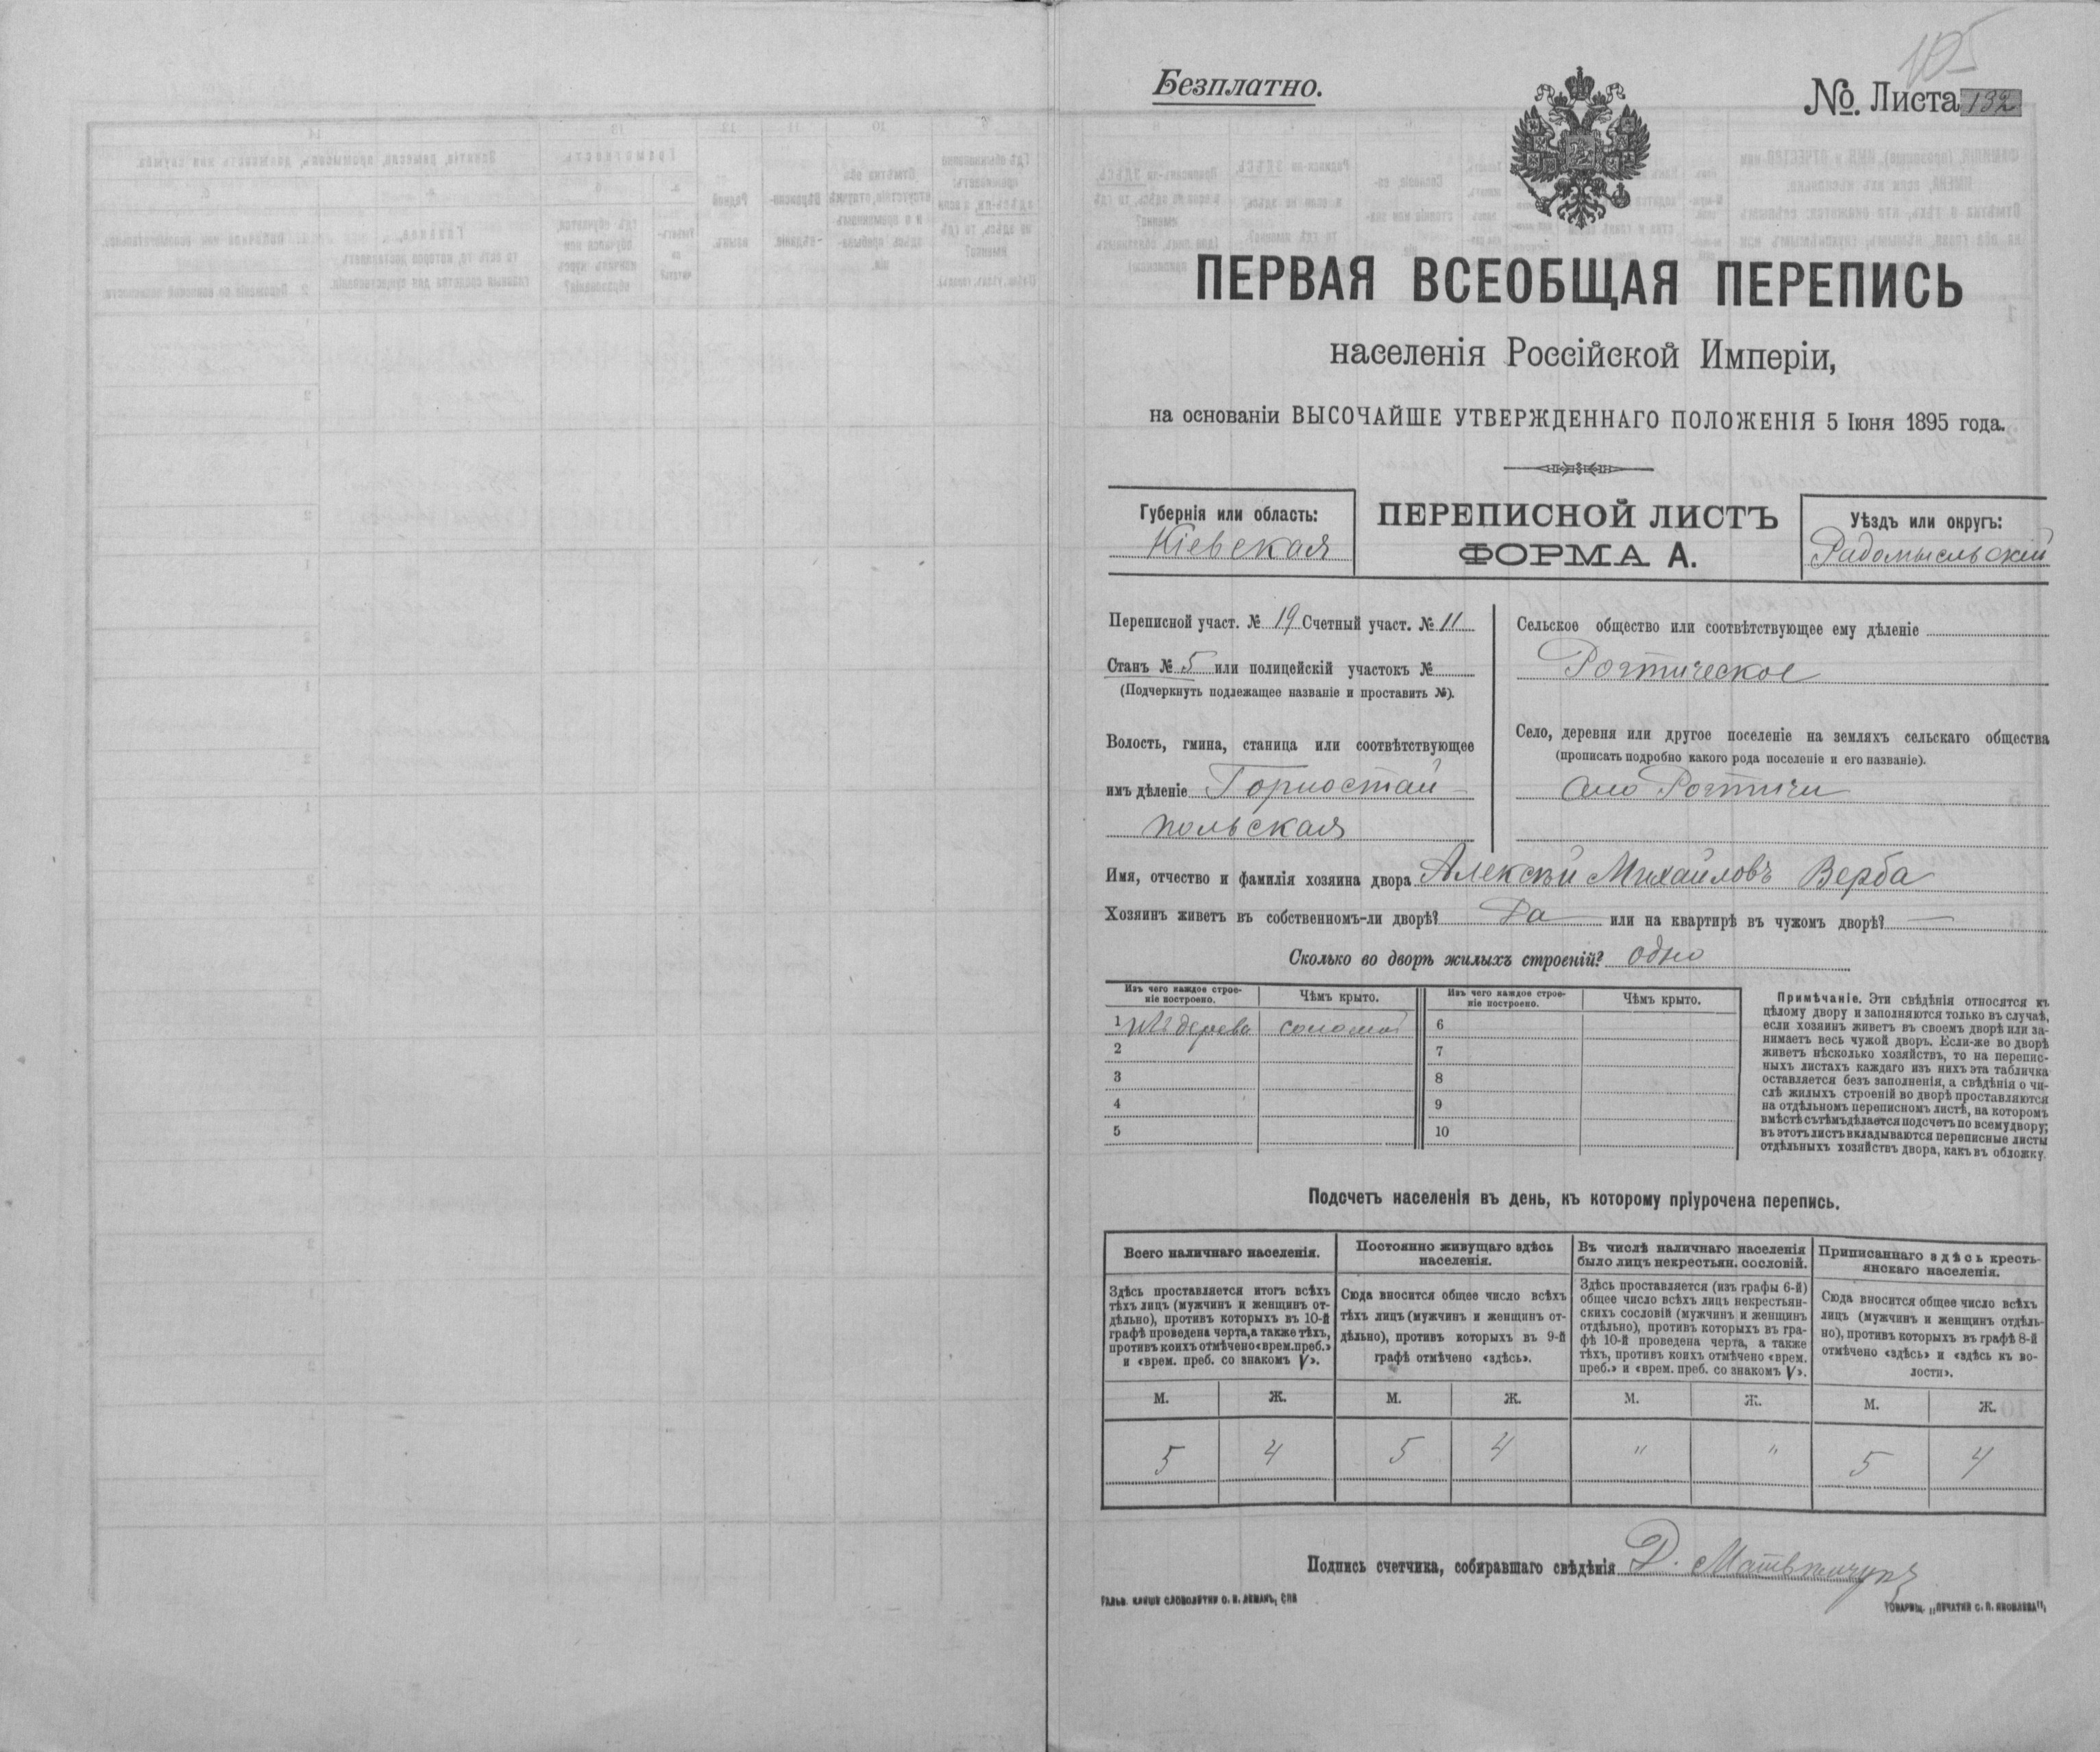 105
Безплатно.
№. Листа 132
ПЕРВАЯ ВСЕОБЩАЯ ПЕРЕПИСЬ
населенія Россійской Имперіи,
на основаніи ВЫСОЧАЙШЕ УТВЕРЖДЕННАГО ПОЛОЖЕНІЯ 5 Іюня 1895 года.
Губернія или область:
Кіевская
ПЕРЕПИСНОЙ ЛИСТЪ
ФОРМА А.
Уѣздъ или округъ:
Радомысльскій
Переписной участ. № 19 Счетный участ. № 11
Станъ № 5 или полицейскій участокъ №
(Подчеркнуть подлежащее названіе и проставить №).
Волость, гмина, станица или соотвѣтствующее
имъ дѣленіе Горностай-
польская
Сельское общество или соотвѣтствующее ему дѣленіе
Ротическое
Село, деревня или другое поселеніе на земляхъ сельскаго общества
(прописать подробно какого рода поселеніе и его названіе).
село Ротичи
Имя, отчество и фамилія хозяина двора Алексѣй Михайловъ Верба
Хозяинъ живетъ въ собственномъ-ли дворѣ? Да или на квартирѣ въ чужомъ дворѣ? —
Сколько во дворѣ жилыхъ строеній? одно
Изъ чего каждое строе-
ніе построено.
Чѣмъ крыто.
Изъ чего каждое строе-
ніе построено.
Чѣмъ крыто.
1 изъ дерева соломой 6
2 7
3 8
4 9
5 10
Примѣчаніе. Эти свѣдѣнія относятся къ
цѣлому двору и заполняются только въ случаѣ,
если хозяинъ живетъ въ своемъ дворѣ или за-
нимаетъ весь чужой дворъ. Если-же во дворѣ
живетъ нѣсколько хозяйствъ, то на перепис-
ныхъ листахъ каждаго изъ нихъ эта табличка
оставляется безъ заполненія, а свѣдѣнія о чи-
слѣ жилыхъ строеній во дворѣ проставляются
на отдѣльномъ переписномъ листѣ, на которомъ
вмѣстѣ съ тѣмъ дѣлается подсчетъ по всему двору;
въ этотъ листъ вкладываются переписные листы
отдѣльныхъ хозяйствъ двора, какъ въ обложку.
Подсчетъ населенія въ день, къ которому пріурочена перепись.
Всего наличнаго населенія.
Здѣсь проставляется итогъ всѣхъ
тѣхъ лицъ (мужчинъ и женщинъ от-
дѣльно), противъ которыхъ въ 10-й
графѣ проведена черта, а также тѣхъ,
противъ коихъ отмѣчено «врем. преб.»
и «врем. преб. со знакомъ V».
Постоянно живущаго здѣсь
населенія.
Сюда вносится общее число всѣхъ
тѣхъ лицъ (мужчинъ и женщинъ от-
дѣльно), противъ которыхъ въ 9-й
графѣ отмѣчено «здѣсь».
Въ числѣ наличнаго населенія
было лицъ некрестьян. сословій.
Здѣсь проставляется (изъ графы 6-й)
общее число всѣхъ лицъ некрестьян-
скихъ сословій (мужчинъ и женщинъ
отдѣльно), противъ которыхъ въ гра-
фѣ 10-й проведена черта, а также
тѣхъ, противъ коихъ отмѣчено «врем.
преб.» и «врем. преб. со знакомъ V».
Приписаннаго здѣсь кресть-
янскаго населенія.
Сюда вносится общее число всѣхъ
лицъ (мужчинъ и женщинъ отдѣль-
но), противъ которыхъ въ графѣ 8-й
отмѣчено «здѣсь» и «здѣсь къ во-
лости».
М. Ж. М. Ж. М. Ж. М. Ж.
5 4 5 4 " " 5 4
Подпись счетчика, собиравшаго свѣдѣнія Д.
ГАЛЬВ. КЛИШЕ СЛОВОЛИТНИ О. И. ЛЕМАНЪ, СПБ
ТОВАРИЩ. „ПЕЧАТНЯ С. П. ЯКОВЛЕВА“.